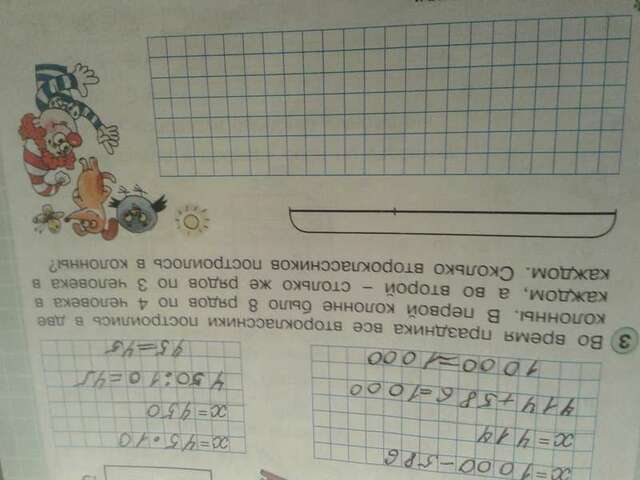 x=1000-586
x=414
414+586=1000
1000=1000
x=45·10
x=450
450:10=45
45=45
3 Во время праздника все второклассники построились в две
колонны. В первой колонне было 8 рядов по 4 человека в
каждом, а во второй – столько же рядов по 3 человека в
каждом. Сколько второклассников построилось в колонны?